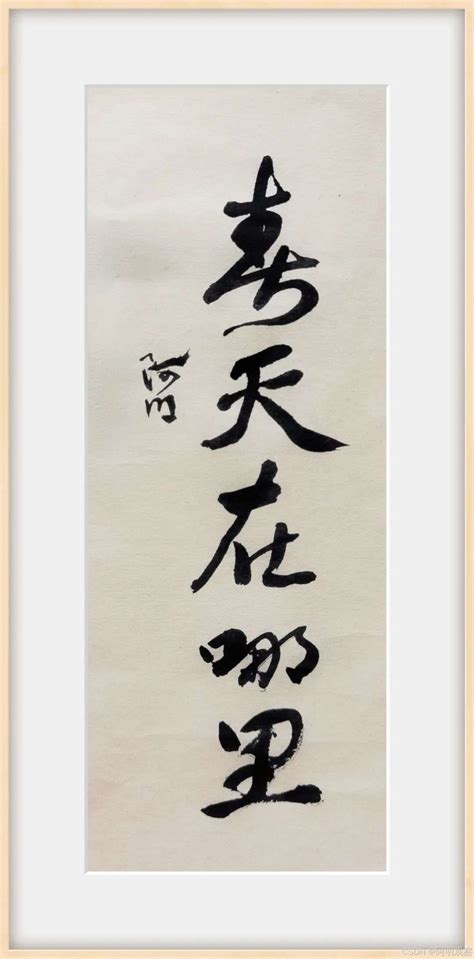 春天在哪里
阿明
CSDN @阿明观察